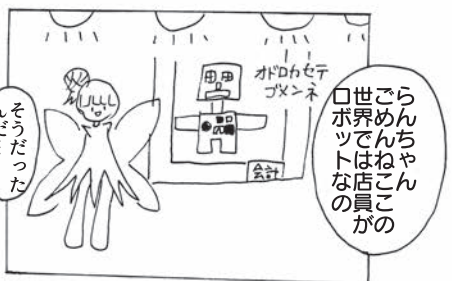 らんちゃん
ごめんねここの
世界では店員が
ロボットなの
オドロカセテ
ゴメンネ
会計
そうだった
んだ